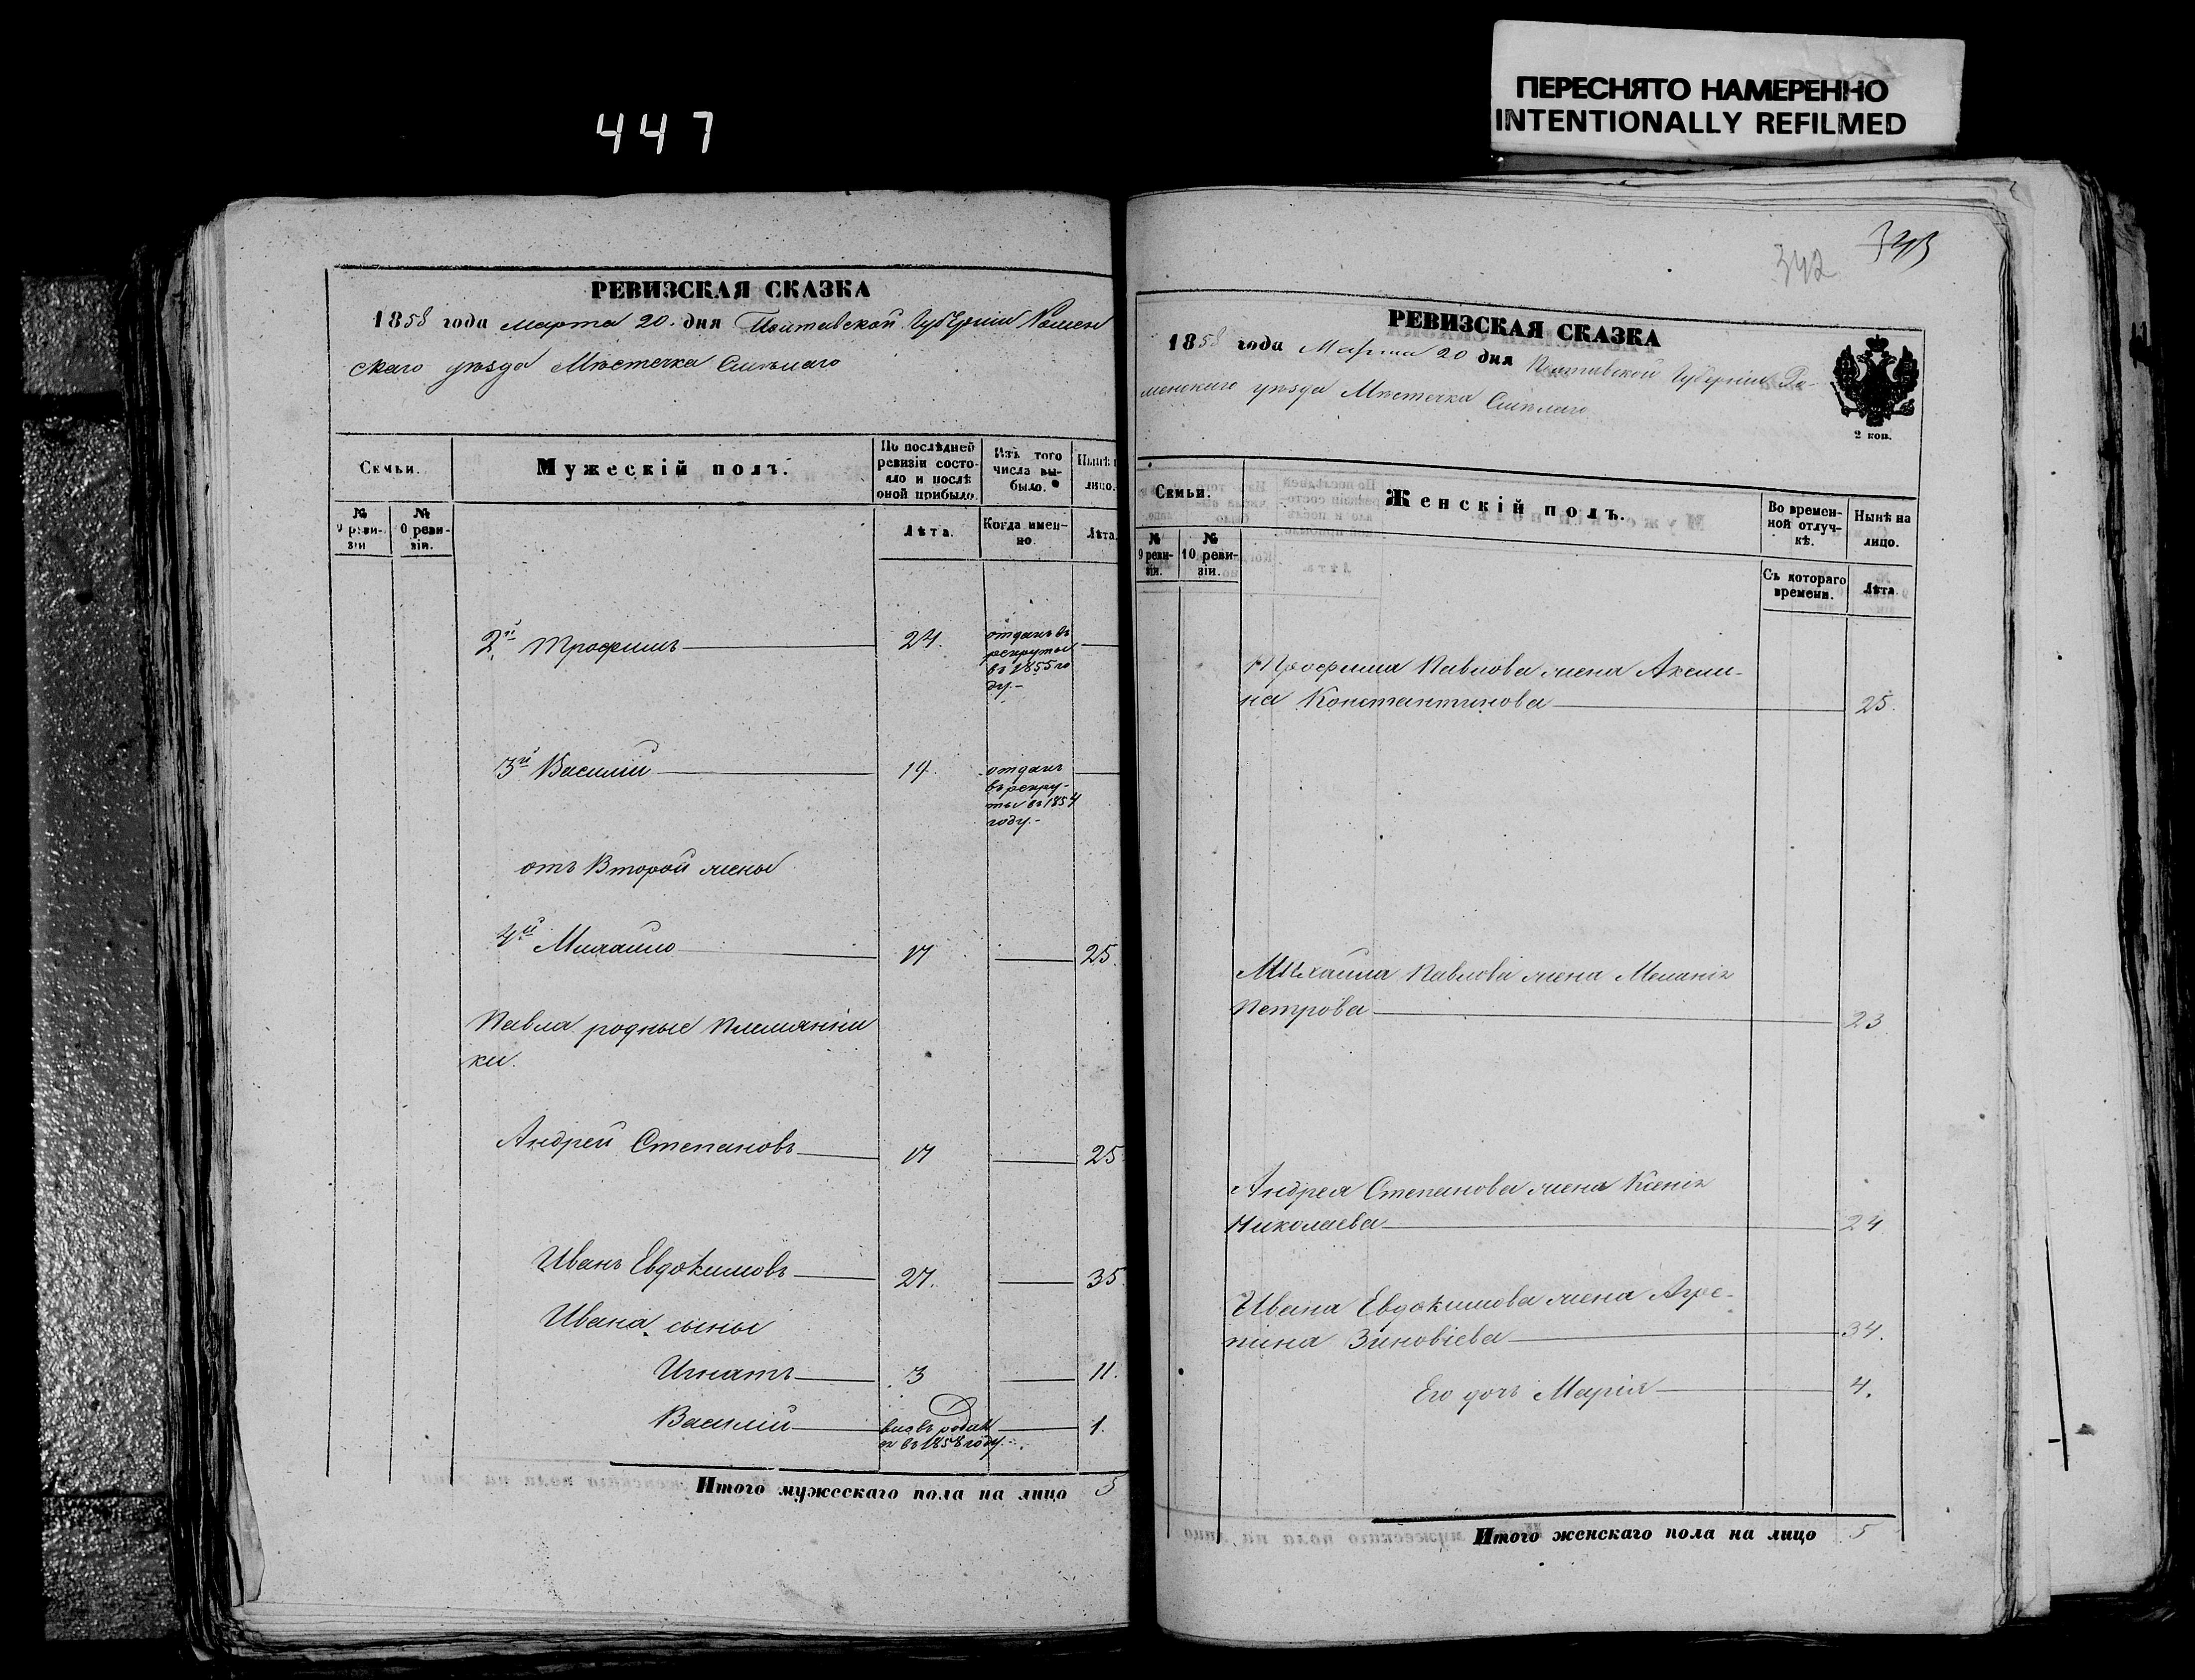 447
ПЕРЕСНЯТО НАМЕРЕННО
INTENTIONALLY REFILMED
РЕВИЗСКАЯ СКАЗКА
1858 года марта 20. дня Полтавской Губерніи Ромен
скаго уѣзда Мѣстечка Смѣлаго
Семьи.
Мужескій полъ.
По послѣдней
ревизіи состо-
яло и послѣ
оной прибыло.
Изъ того
числа вы-
было.
Нынѣ н
лицо.
№
9 реви-
зіи
№
0 реви-
зіи.
Лѣта.
Когда имен-
но.
Лѣта.
2й Трофимъ 24. отданъ въ
рекруты
въ 1855 го
ду.-
3й Василій 19. отданъ
въ рекру-
ты въ 1854
году.-
отъ Второй жены
4й Михайло 17 25.
Павла родные племянни
ки.
Андрей Степановъ 17 25.
Иванъ Евдокимовъ 27. 35.
Ивана сыны
Игнатъ 3 11.
Василій вновь родил
ся въ 1858 году. 1.
Итого мужескаго пола на лицо 5
342 343
РЕВИЗСКАЯ СКАЗКА
1858 года Марта 20 дня Полтавской Губерніи Ро-
менскаго уѣзда Мѣстечка Смѣлаго
2 коп.
Семьи.
Женскій полъ.
Во времен-
ной отлуч-
кѣ.
Нынѣ на
лицо.
№
9 реви-
зіи.
№
10 реви-
зіи.
Съ котораго
времени.
Лѣта.
Трофима Павлова жена Аксини-
на Константинова 25.
Михайла Павлова жена Меланія
Петрова 23
Андрея Степанова жена Ксенія
Николаева 24
Ивана Евдокимова жена Агре-
пина Зиновіева 34.
Его дочь Марія 4.
Итого женскаго пола на лицо 5